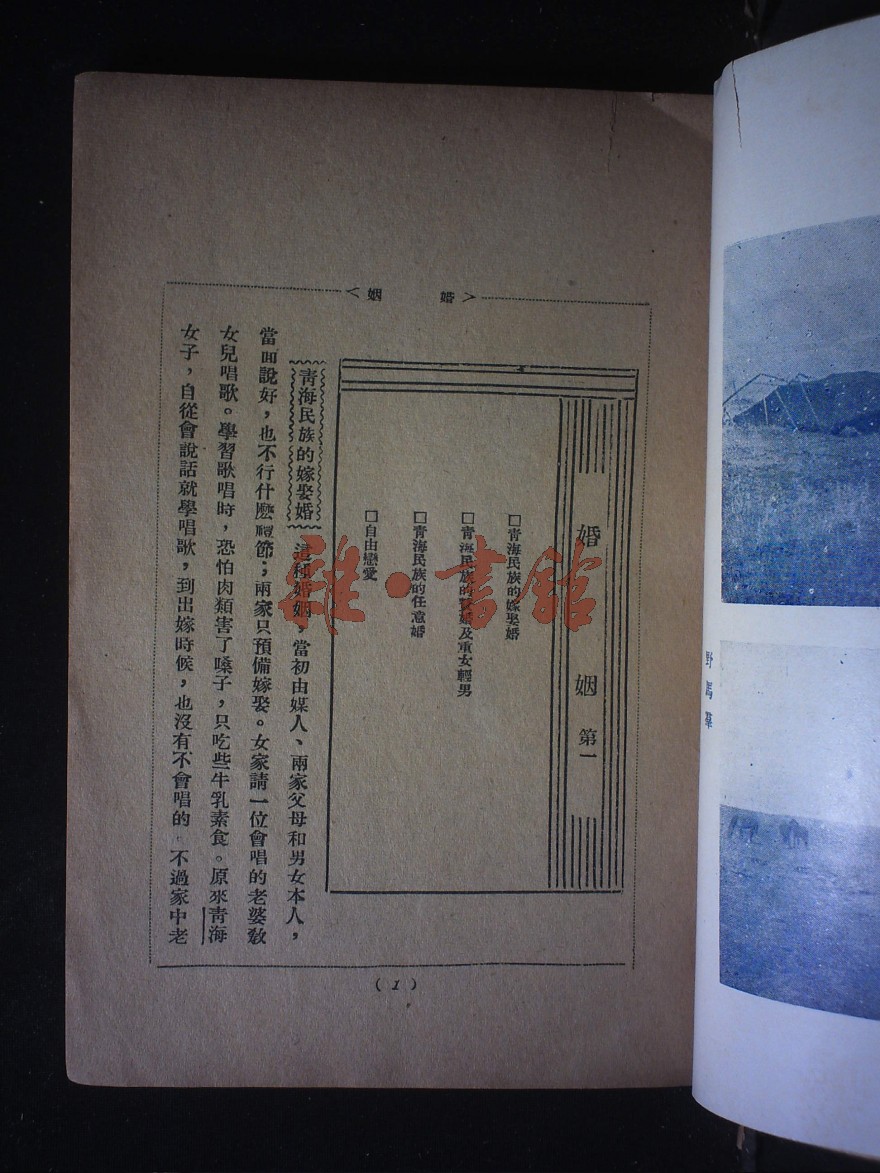 婚姻
婚姻 第一
□青海民族的嫁娶婚
□青海民族的婚及重女輕男
□青海民族的任意婚
□自由戀愛
青海民族的嫁娶婚 這種婚姻，當初由媒人、兩家父母和男女本人，
當面說好，也不行什麽禮節；兩家只預備嫁娶。女家請一位會唱的老婆教
女兒唱歌。學習歌唱時，恐怕肉類害了嗓子，只吃些牛乳素食。原來青海
女子，自從會說話就學唱歌，到出嫁時候，也沒有不會唱的。不過家中老
(1)
野馬羣
雜·書館